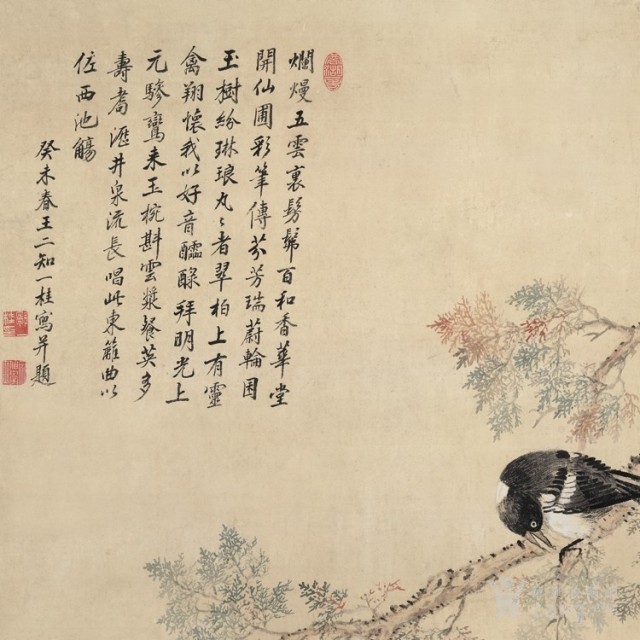 爛熳五雲裏髣髴百和香華堂
開仙圃彩筆傳芬芳瑞蔚輪囷
玉樹紛琳琅丸丸者翠柏上有靈
禽翔懷我以好音醽醁拜明光上
元驂鸞來玉椀斟雲漿餐英多
壽耈灑井泉流長唱此東籬曲以
佐西池觴
癸未春王二知一桂寫并題